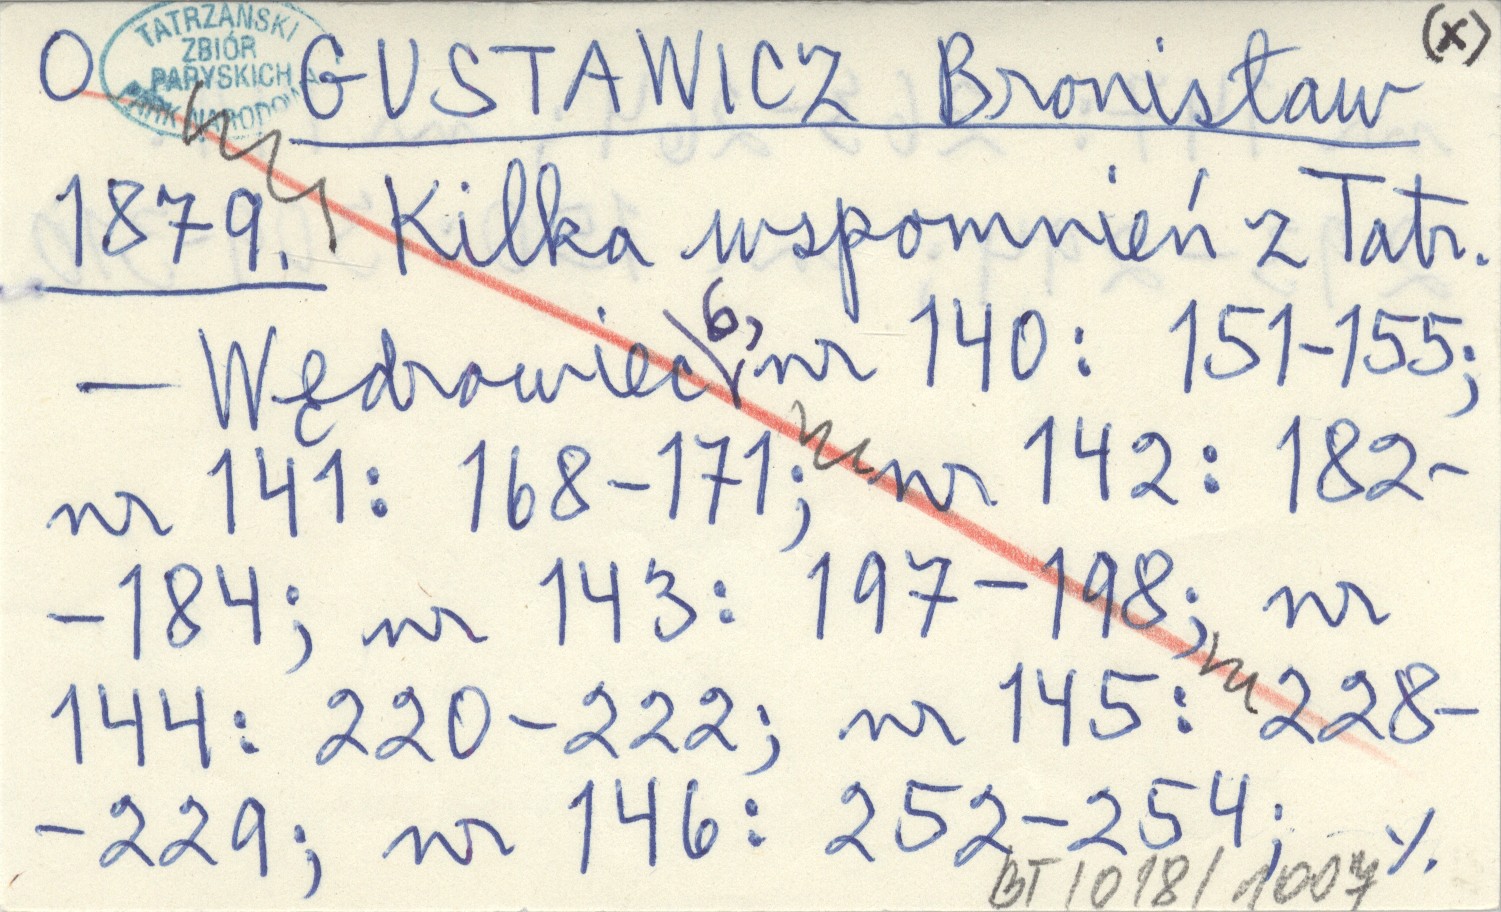 (x)
TATRZAŃSKI
ZBIÓR
PARYSKICH
PARK NARODOWY
O GUSTAWICZ Bronisław
1879. Kilka wspomnień z Tatr.
— Wędrowiec 6, nr 140: 151-155;
nr 141: 168-171; nr 142: 182-
-184; nr 143: 197-198; nr
144: 220-222; nr 145: 228-
-229; nr 146: 252-254; ./.
BT/018/1007